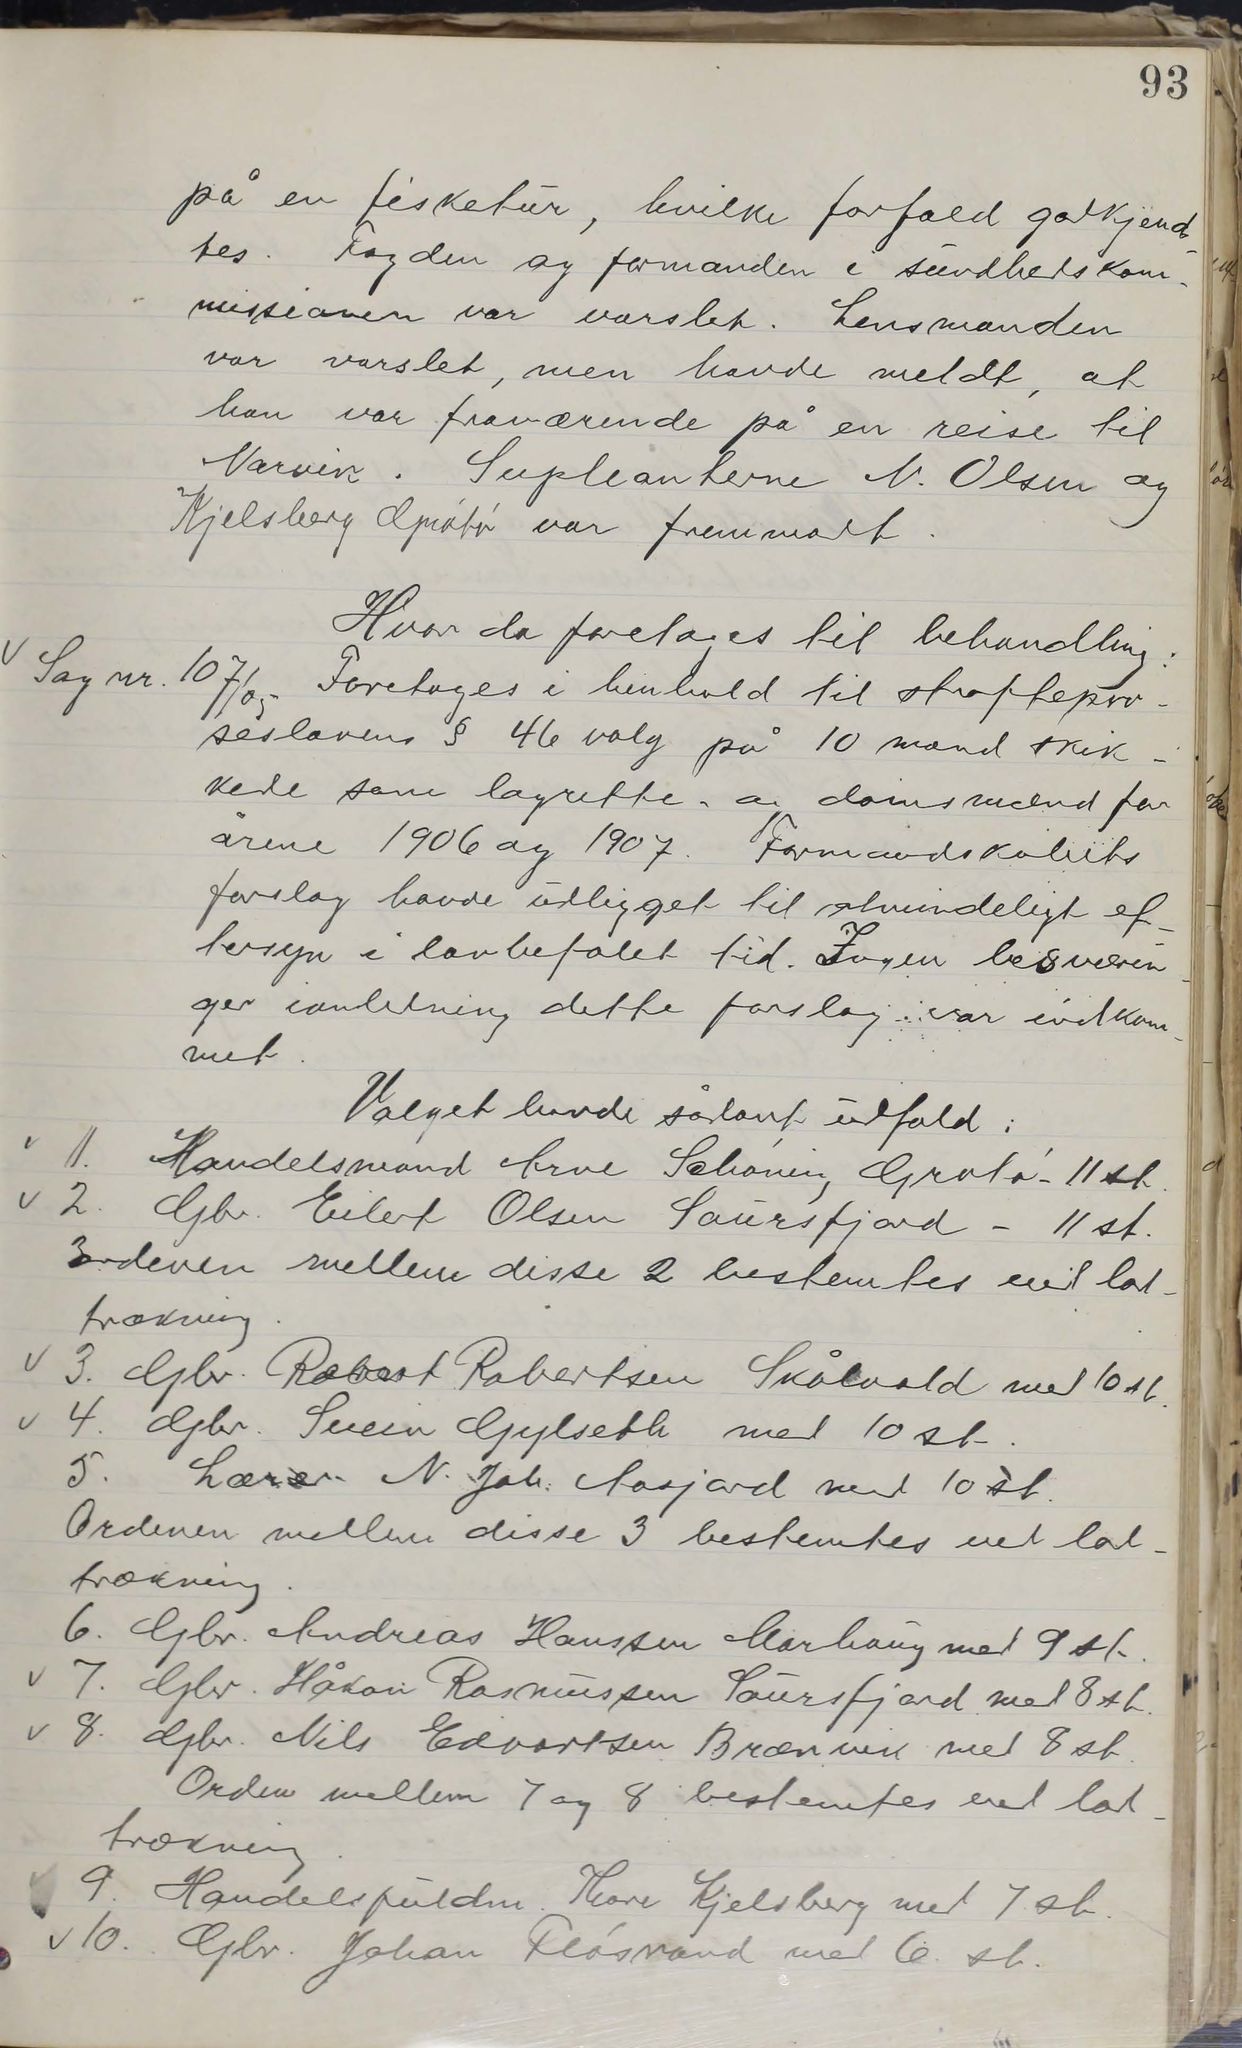 93
på en fisketur, hvilke forfald godkjend-
tes. Fogden og formanden i sundhedskom-
missionen var varslet. Lensmanden
var varslet, men havde meldt, at
han var fraværende på en reise til
Narvik. Supleanterne N. Olsen og
Kjelsberg Grøtø var fremmødt.
Hvor da foretoges til behandling:
Sag nr. 107/05 Foretoges i henhold til straffepro-
seslovens § 46 valg på 10 mænd skik-
kede som lagrette- og domsmænd for
årene 1906 og 1907. Formandskabets
forslag havde udligget til almindeligt ef-
tersyn i lovbefalet tid. Ingen besværin-
ger ianledning dette forslag var indkom-
met.
Valget havde sådant udfald:
1. Handelsmand Arne Schøning Grøtø - 11 st.
2. Gbr. Eilert Olsen Saursfjord - 11 st.
Ordenen mellem disse 2 bestemtes ved lod-
trækning.
3. Gbr. Robert Robertsen Skålvold med 10 st.
4. Gbr. Svein Gylseth med 10 st.
5. Lærer N. Joh. Aasjord med 10 st.
Ordenen mellem disse 3 bestemtes ved lod-
trækning.
6. Gbr. Andreas Hanssen Marhaug med 9 st.
7. Gbr. Håkon Rasmussen Saursfjord med 8 st.
8. Gbr. Nils Edvartsen Brænvik med 8 st.
Orden mellem 7 og 8 bestemtes ved lod-
trækning.
9. Handelsfuldm. Thore Kjelsberg med 7 st.
10. Gbr. Johan Fløsvand med 6 st.